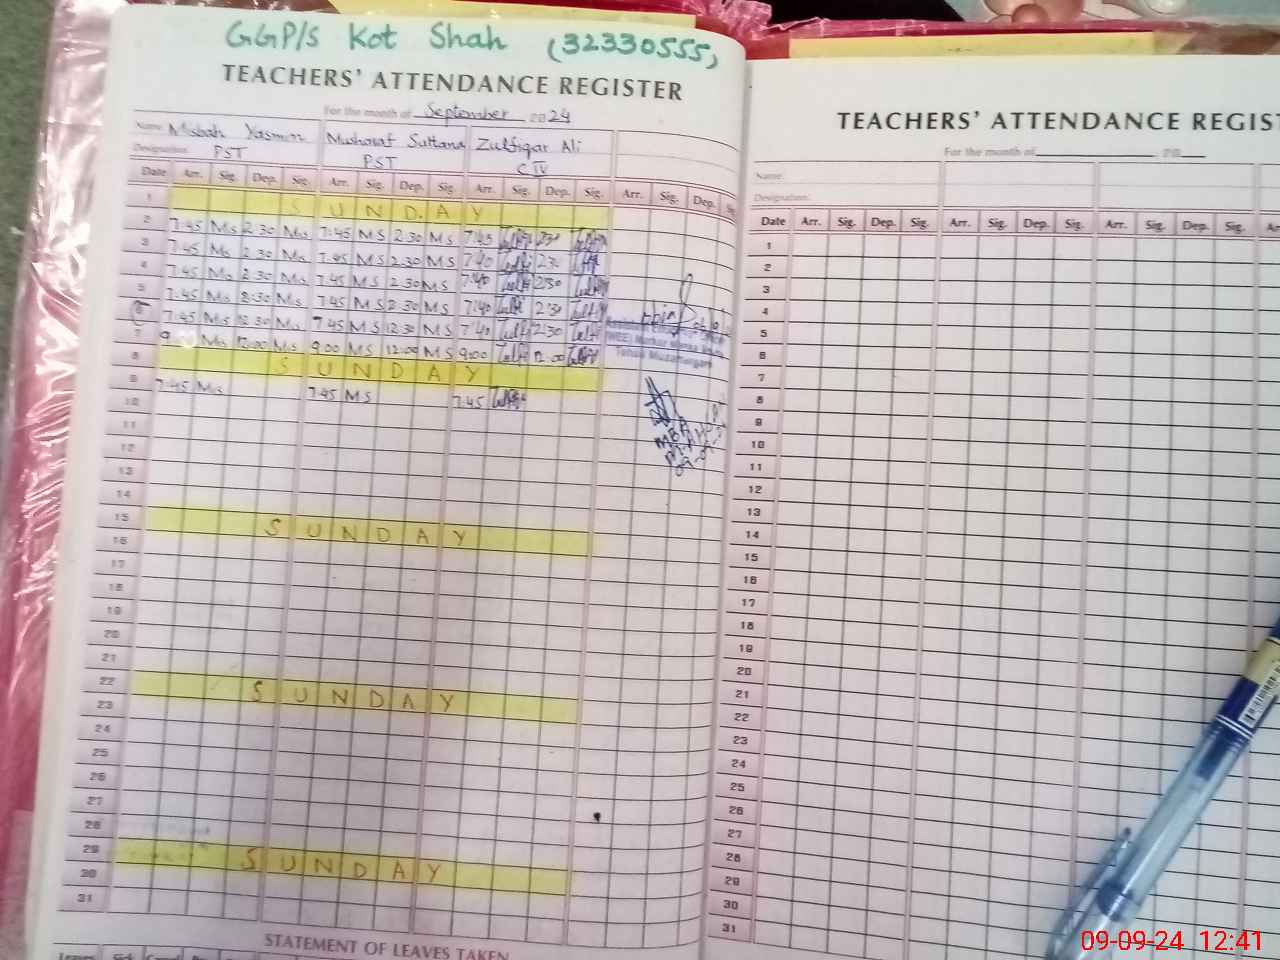 GGP/S Kot Shah (32330555)
TEACHERS' ATTENDANCE REGISTER
For the month of September 2024
Name: Misbah Yasmin Musharaf Sultana Zulfiqar Ali
Designation: PST PST C IV
Date Arr. Sig. Dep. Sig. Arr. Sig. Dep. Sig. Arr. Sig. Dep. Sig. Arr. Sig. Dep. Sig.
1 SUNDAY
2 7:45 Ms 2:30 Ms 7:45 MS 2:30 MS 7:45 2:30
3 7:45 Ms 2:30 Ms 7:45 MS 2:30 MS 7:40 2:30
4 7:45 Ms 2:30 Ms 7:45 MS 2:30 MS 7:40 2:30
5 7:45 Ms 2:30 Ms 7:45 MS 2:30 MS 7:40 2:30
6 7:45 Ms 12:30 Ms 7:45 MS 12:30 MS 7:40 12:30
7 9:00 Ms 12:00 Ms 9:00 MS 12:00 MS 9:00 12:00
8 SUNDAY
9 7:45 Ms 7:45 MS 7:45
10
11
12
13
14
15 SUNDAY
16
17
18
19
20
21
22 SUNDAY
23
24
25
26
27
28
29 SUNDAY
30
31
STATEMENT OF LEAVES TAKEN
Leaves Sick Casual
Tehsil Muzaffargarh
MEA
09-09-24
TEACHERS' ATTENDANCE REGIST
For the month of 20
Name:
Designation:
Date Arr. Sig. Dep. Sig. Arr. Sig. Dep. Sig. Arr. Sig. Dep. Sig.
1
2
3
4
5
6
7
8
9
10
11
12
13
14
15
16
17
18
19
20
21
22
23
24
25
26
27
28
29
30
31
09-09-24 12:41